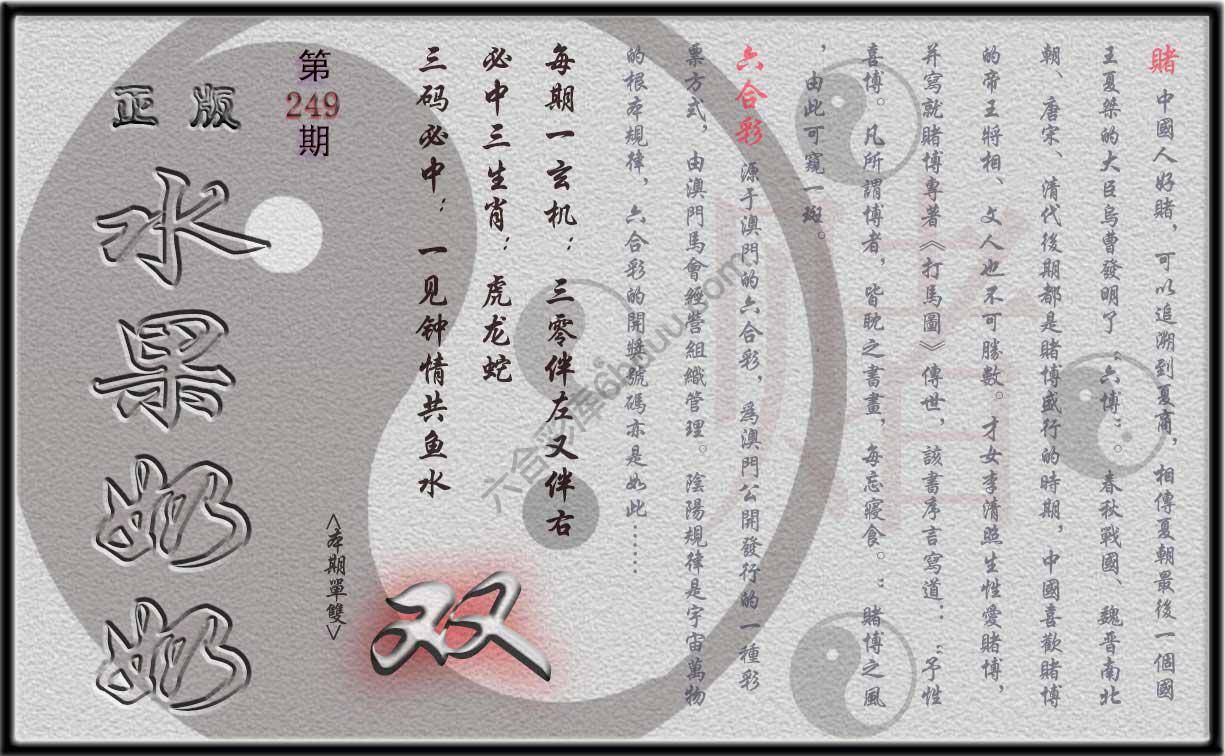 賭 中國人好賭，可以追溯到夏商，相傳夏朝最後一個國
王夏桀的大臣烏曹發明了“六博”。春秋戰國、魏晋南北
朝、唐宋、清代後期都是賭博盛行的時期，中國喜歡賭博
的帝王將相、文人也不可勝數。才女李清照生性愛賭博，
并寫就賭博專著《打馬圖》傳世，該書序言寫道：“予性
喜博。凡所謂博者，皆眈之書畫，每忘寢食。”賭博之風
，由此可窺一斑。
六合彩 源于澳門的六合彩，爲澳門公開發行的一種彩
票方式，由澳門馬會經營組織管理。陰陽規律是宇宙萬物
的根本規律，六合彩的開獎號碼亦是如此……
每期一玄机：三零伴左又伴右
必中三生肖：虎龙蛇
三码必中：一见钟情共鱼水
双
<本期單雙>
第
249
期
正版
水果奶奶
賭
六合彩库6hduu.com